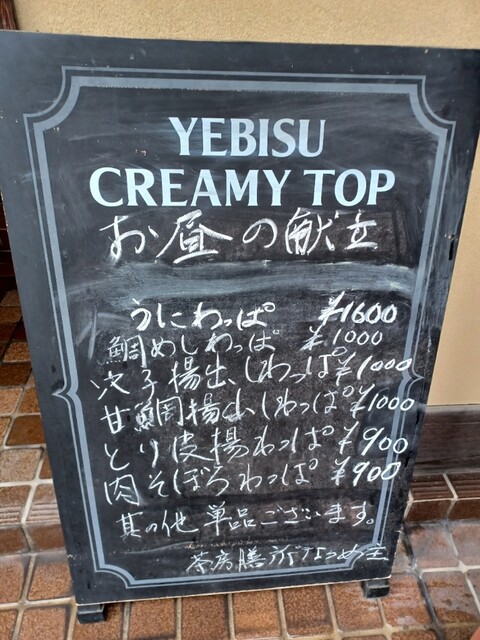 YEBISU
CREAMY TOP
お昼の献立
うにわっぱ ¥1600
鯛めしわっぱ ¥1000
穴子揚出しわっぱ ¥1000
甘鯛揚出しわっぱ ¥1000
とり皮揚わっぱ ¥900
肉そぼろわっぱ ¥900
其の他単品ございます。
茶房膳所なつめ